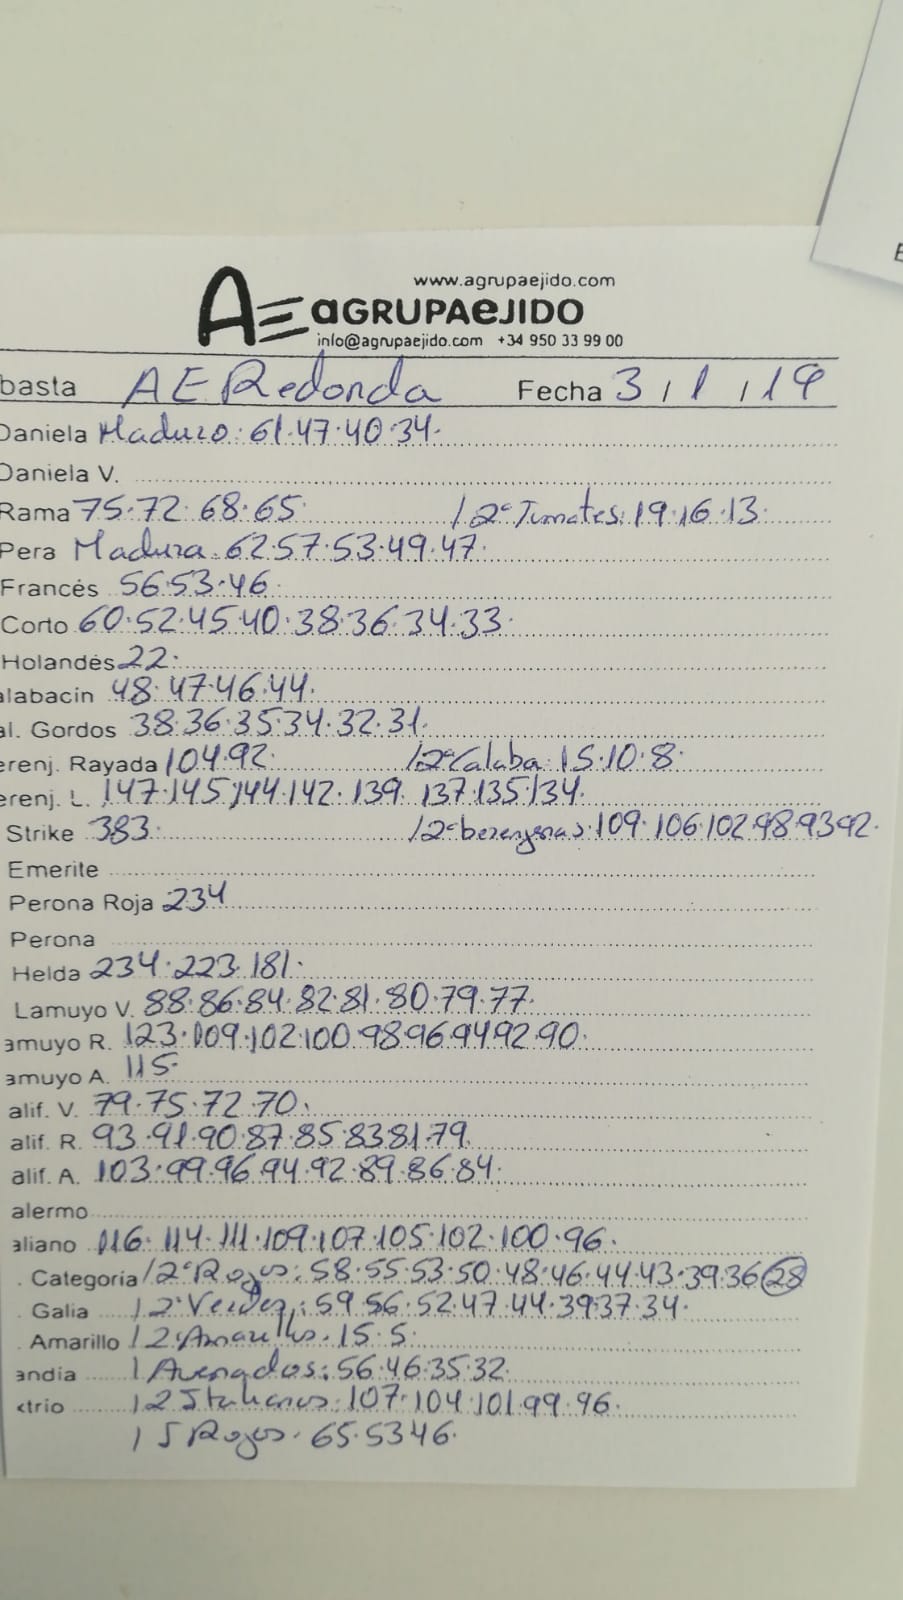 www.agrupaejido.com
AE aGRUPAeJIDO
info@agrupaejido.com +34 950 33 99 00
basta AE Redonda Fecha 3/1/19
Daniela Maduro: 61.47.40.34.
Daniela V.
Rama 75.72.68.65 /2ª Tomates: 19.16.13.
Pera Madura. 62.57.53.49.47.
Francés 56.53.46
Corto 60.52.45.40.38.36.34.33.
Holandés 22.
alabacín 48.47.46.44.
al. Gordos 38.36.35.34.32.31.
erenj. Rayada 104.92. /2ª Calaba: 15.10.8.
erenj. L. 147.145.144.142.139.137.135.134.
Strike 383. /2ª berengenas: 109.106.102.98.93.92.
Emerite
Perona Roja 234
Perona
Helda 234.223.181.
Lamuyo V. 88.86.84.82.81.80.79.77.
amuyo R. 123.109.102.100.98.96.94.92.90.
amuyo A. 115.
alif. V. 79.75.72.70.
alif. R. 93.91.90.87.85.83.81.79.
alif. A. 103.99.96.94.92.89.86.84.
alermo
aliano 116.114.111.109.107.105.102.100.96.
. Categoría /2ª Rojos: 58.55.53.50.48.46.44.43.39.36 28
. Galia /2ª Verdes: 59.56.52.47.44.39.37.34.
. Amarillo /2ª Amarillos. 15.5.
andia / Asurados: 56.46.35.32.
ctrio /2 Italianos: 107.104.101.99.96.
/ S Rojos. 65.53.46.